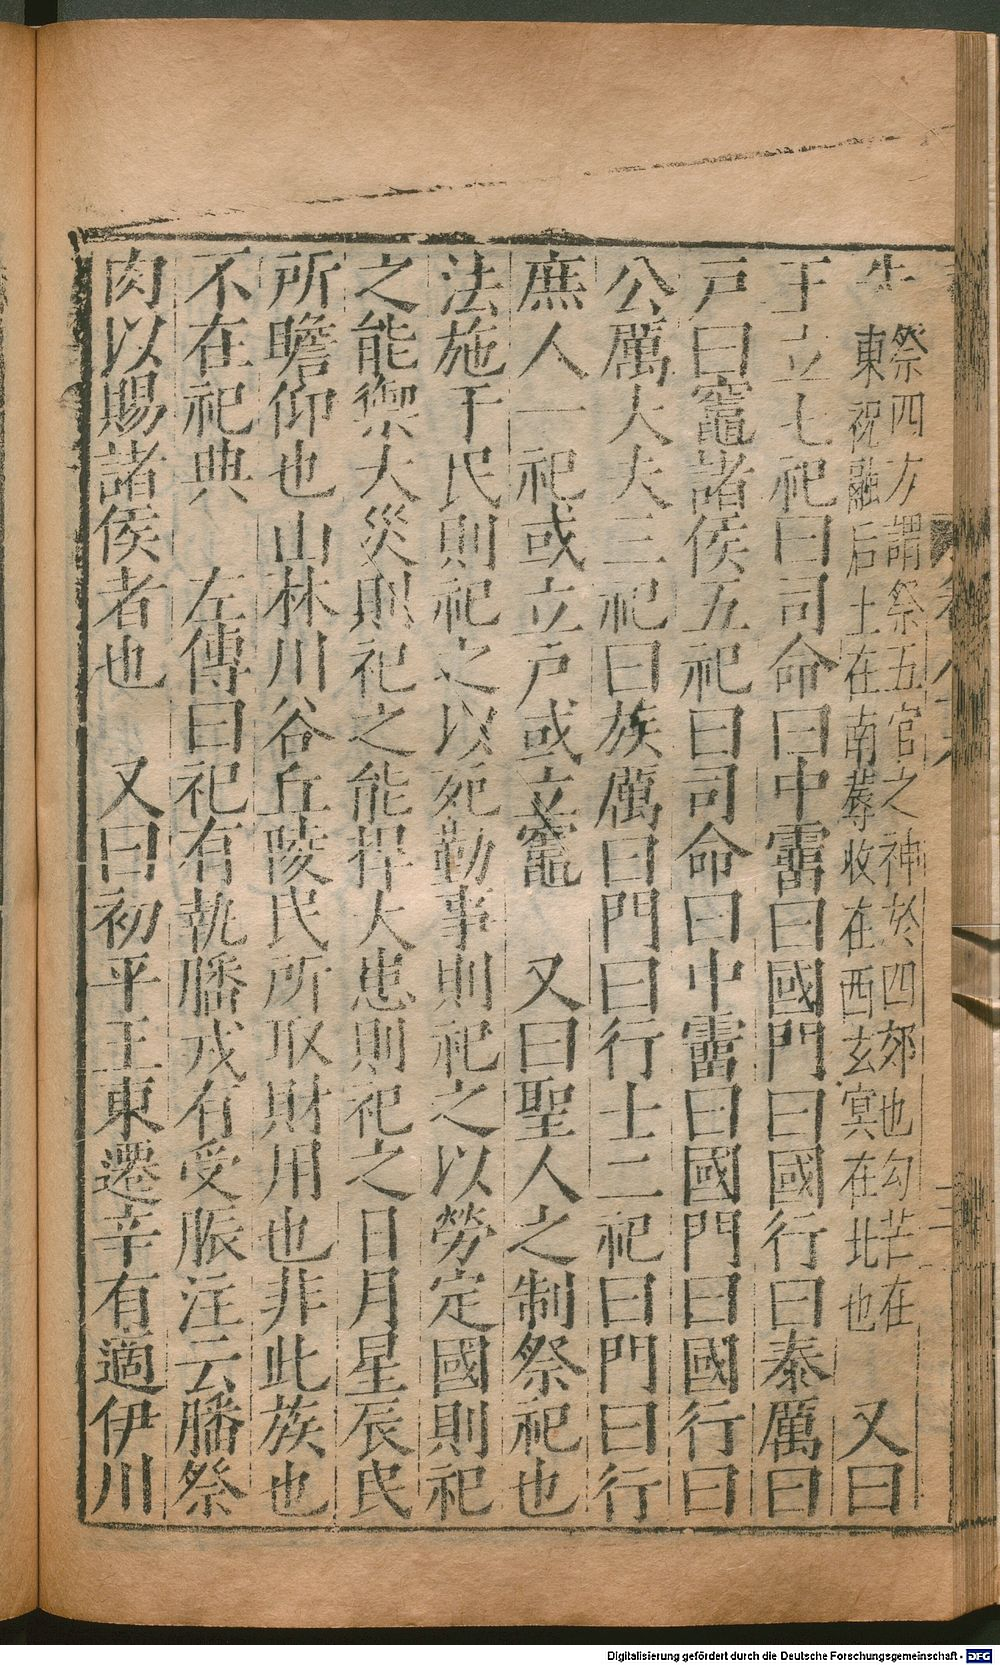 牛 祭四方謂祭五官之神於四郊也勾芒在
東祝融后土在南蓐收在西玄冥在北也 又曰
王立七祀曰司命曰中霤曰國門曰國行曰泰厲曰
戸曰竈諸侯五祀曰司命曰中霤曰國門曰國行曰
公厲大夫三祀曰族厲曰門曰行士二祀曰門曰行
庶人一祀或立戸或立竈 又曰聖人之制祭祀也
法施于民則祀之以死勤事則祀之以勞定國則祀
之能禦大災則祀之能捍大患則祀之日月星辰民
所瞻仰也山林川谷丘陵民所取財用也非此族也
不在祀典 左傳曰祀有執膰戎有受脤注云膰祭
肉以賜諸侯者也 又曰初平王東遷辛有適伊川
Digitalisierung gefördert durch die Deutsche Forschungsgemeinschaft - DFG